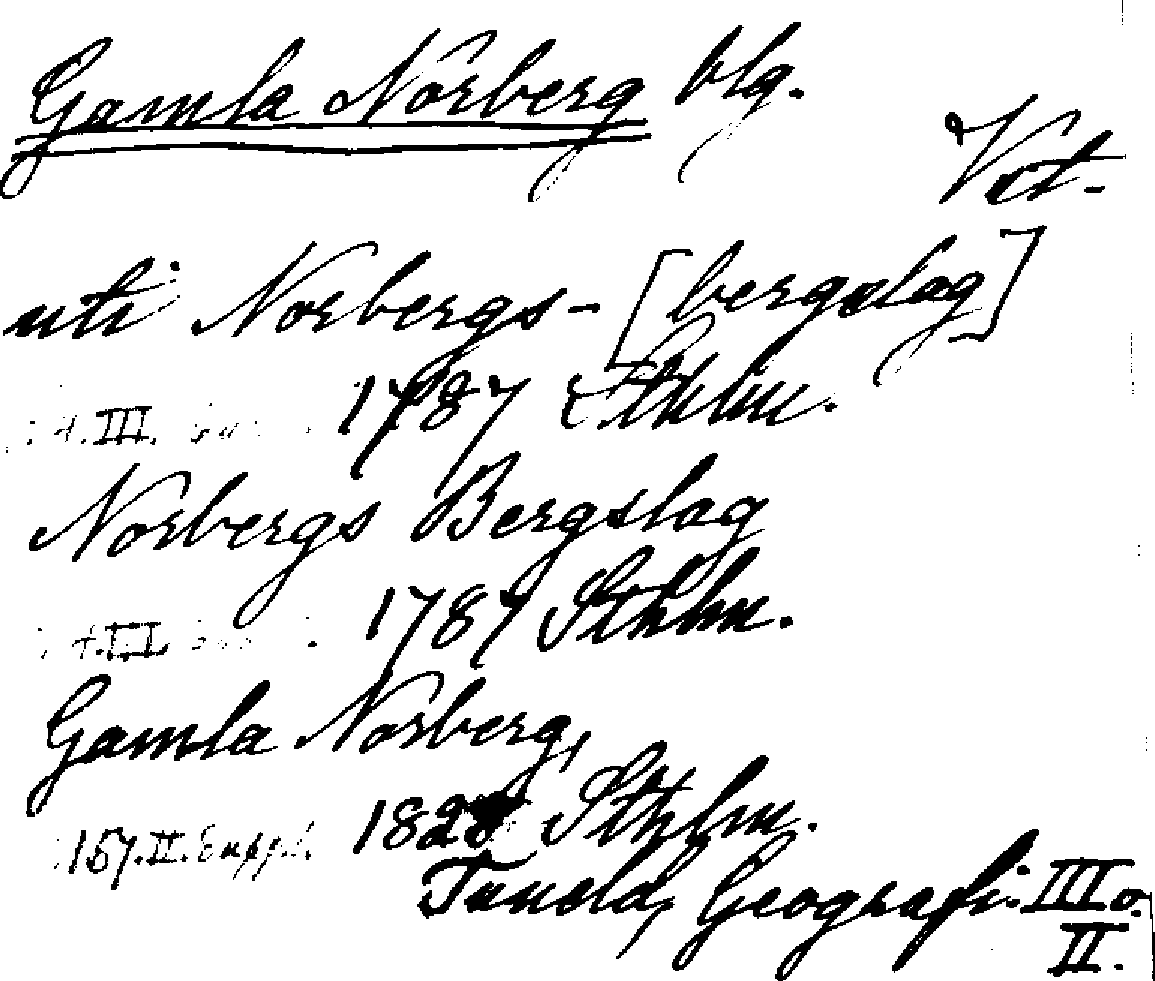 Gamla Norberg blg.
Vst.
uti Norbergs- [bergslag]
III. 1787 Sthlm.
Norbergs Bergslag
1787 Sthlm.
Gamla Norberg,
157. II. Suppl. 182 Sthlm.
Tuneld, Geografi. III o.
II.